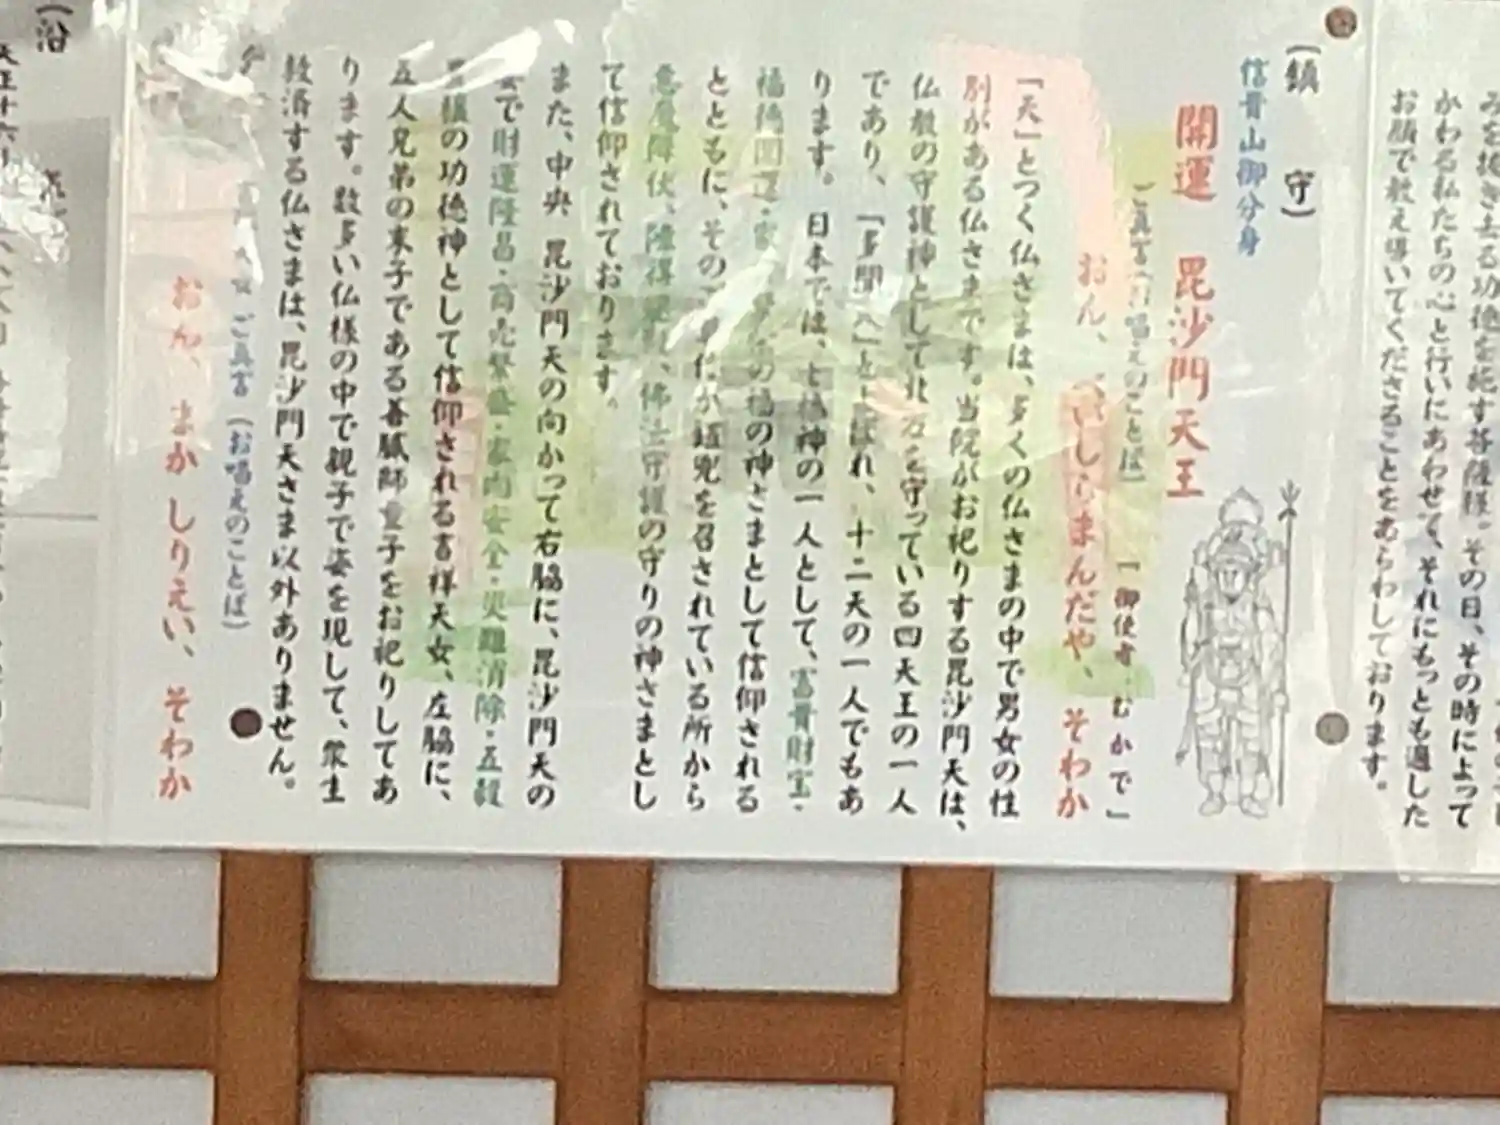 みを抜き去る功徳を施す菩薩様。その日、その時によって
かわる私たちの心と行いにあわせて、それにもっとも適した
お顔で教え導いてくださることをあらわしております。
（鎮 守）
信貴山御分身
開運 毘沙門天王
ご真言（お唱えのことば） 「御使者：むかで」
おん、べいしらまんだや、そわか
「天」とつく仏さまは、多くの仏さまの中で男女の性
別がある仏さまです。当院がお祀りする毘沙門天は、
仏教の守護神として北方を守っている四天王の一人
であり、「多聞天」とよばれ、十二天の一人でもあ
ります。日本では、七福神の一人として、富貴財宝・
福徳開運・の福の神さまとして信仰される
とともに、その が鎧兜を召されている所から
悪魔降伏、佛法守護の守りの神さまとし
て信仰されております。
また、中央 毘沙門天の向かって右脇に、毘沙門天の
妻で財運隆昌・商売繁盛・家内安全・災難消除・五穀
豊穣の功徳神として信仰される吉祥天女、左脇に、
五人兄弟の末子である善膩師童子をお祀りしてあ
ります。数多い仏様の中で親子で姿を現して、衆生
救済する仏さまは、毘沙門天さま以外ありません。
天女 ご真言（お唱えのことば）
おん、まか しりえい、そわか
（沿
天正十六